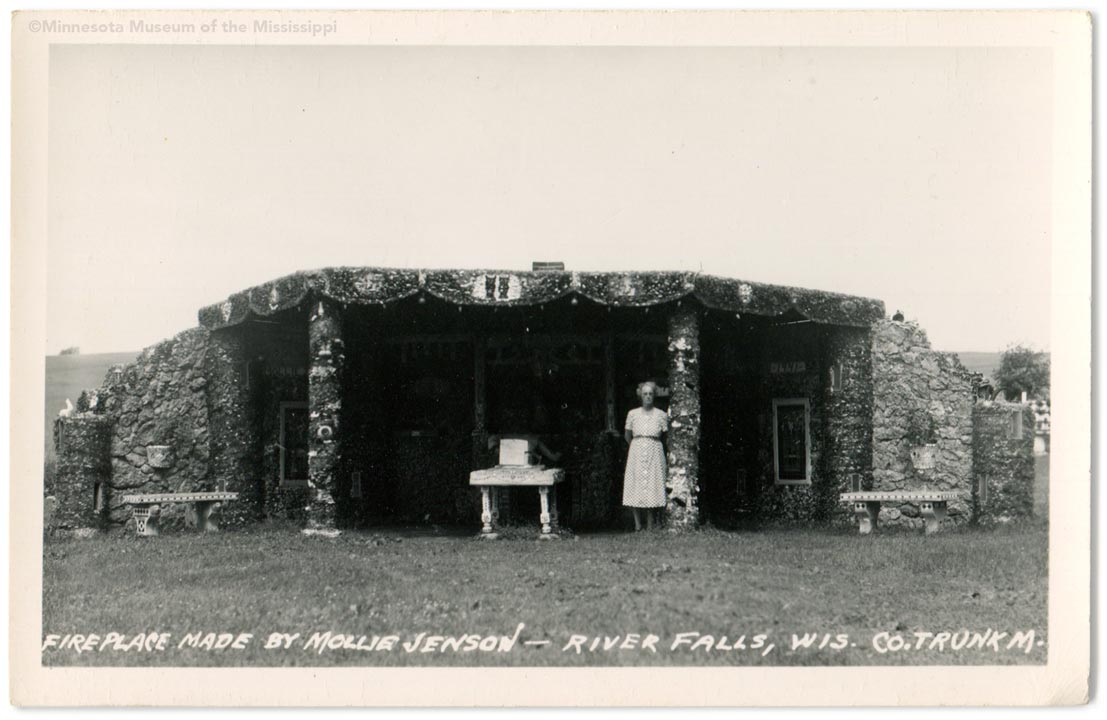 ©Minnesota Museum of the Mississippi
FIREPLACE MADE BY MOLLIE JENSON — RIVER FALLS, WIS. CO. TRUNK M.